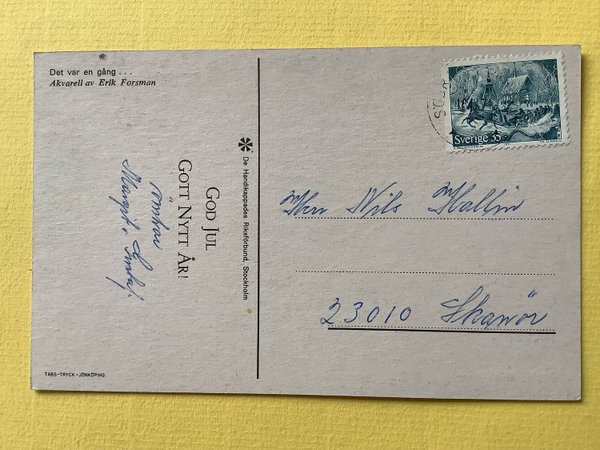 Det var en gång...
Akvarell av Erik Forsman
GOD JUL
GOTT NYTT ÅR!
önskar
De Handikappades Riksförbund, Stockholm
TABS-TRYCK - JÖNKÖPING
Sverige 55
Herr Nils Hallin
23010 Skanör